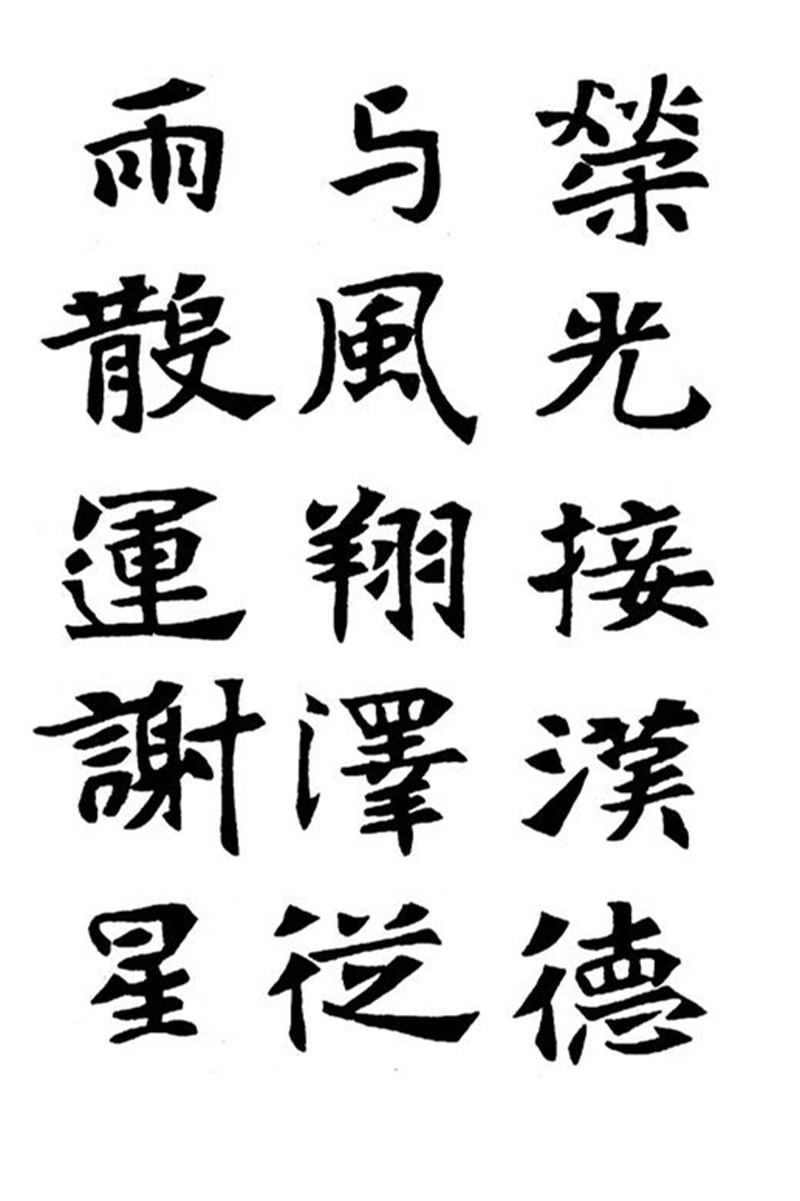 榮光接漢德
与風翔澤從
雨散運謝星